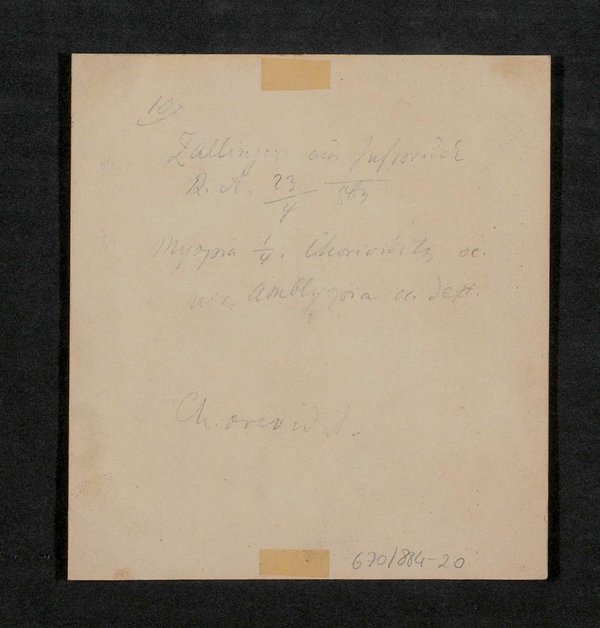 10.
Zallinger aus Insbruck
R. A. 23/4 863
Myopia 1/4. Chorioiditis oc.
utr. Amblyopia oc. dext.
Chorioid
670/884-20